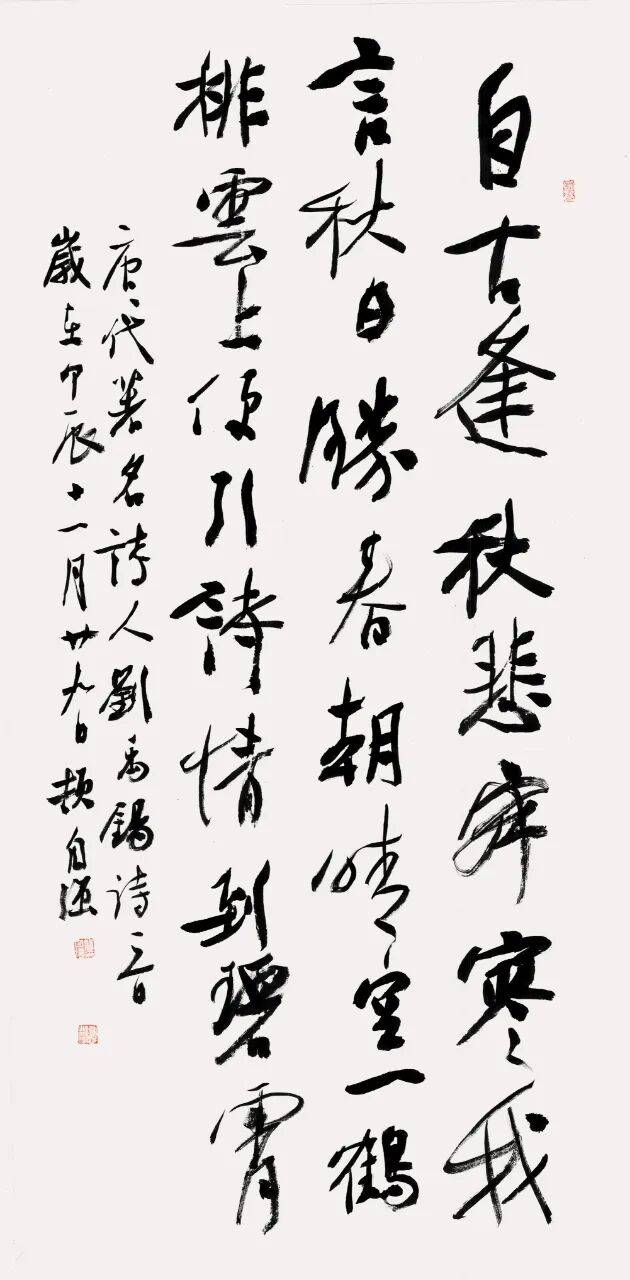 自古逢秋悲寂寥我
言秋日勝春朝晴空一鶴
排雲上便引詩情到碧霄
唐代著名詩人劉禹錫詩一首
歲在甲辰十一月廿九日自強